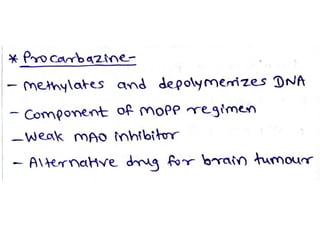 * Procarbazine-
- Methylates and depolymerizes DNA
- Component of MOPP regimen
- Weak MAO inhibitor
- Alternative drug for brain tumour